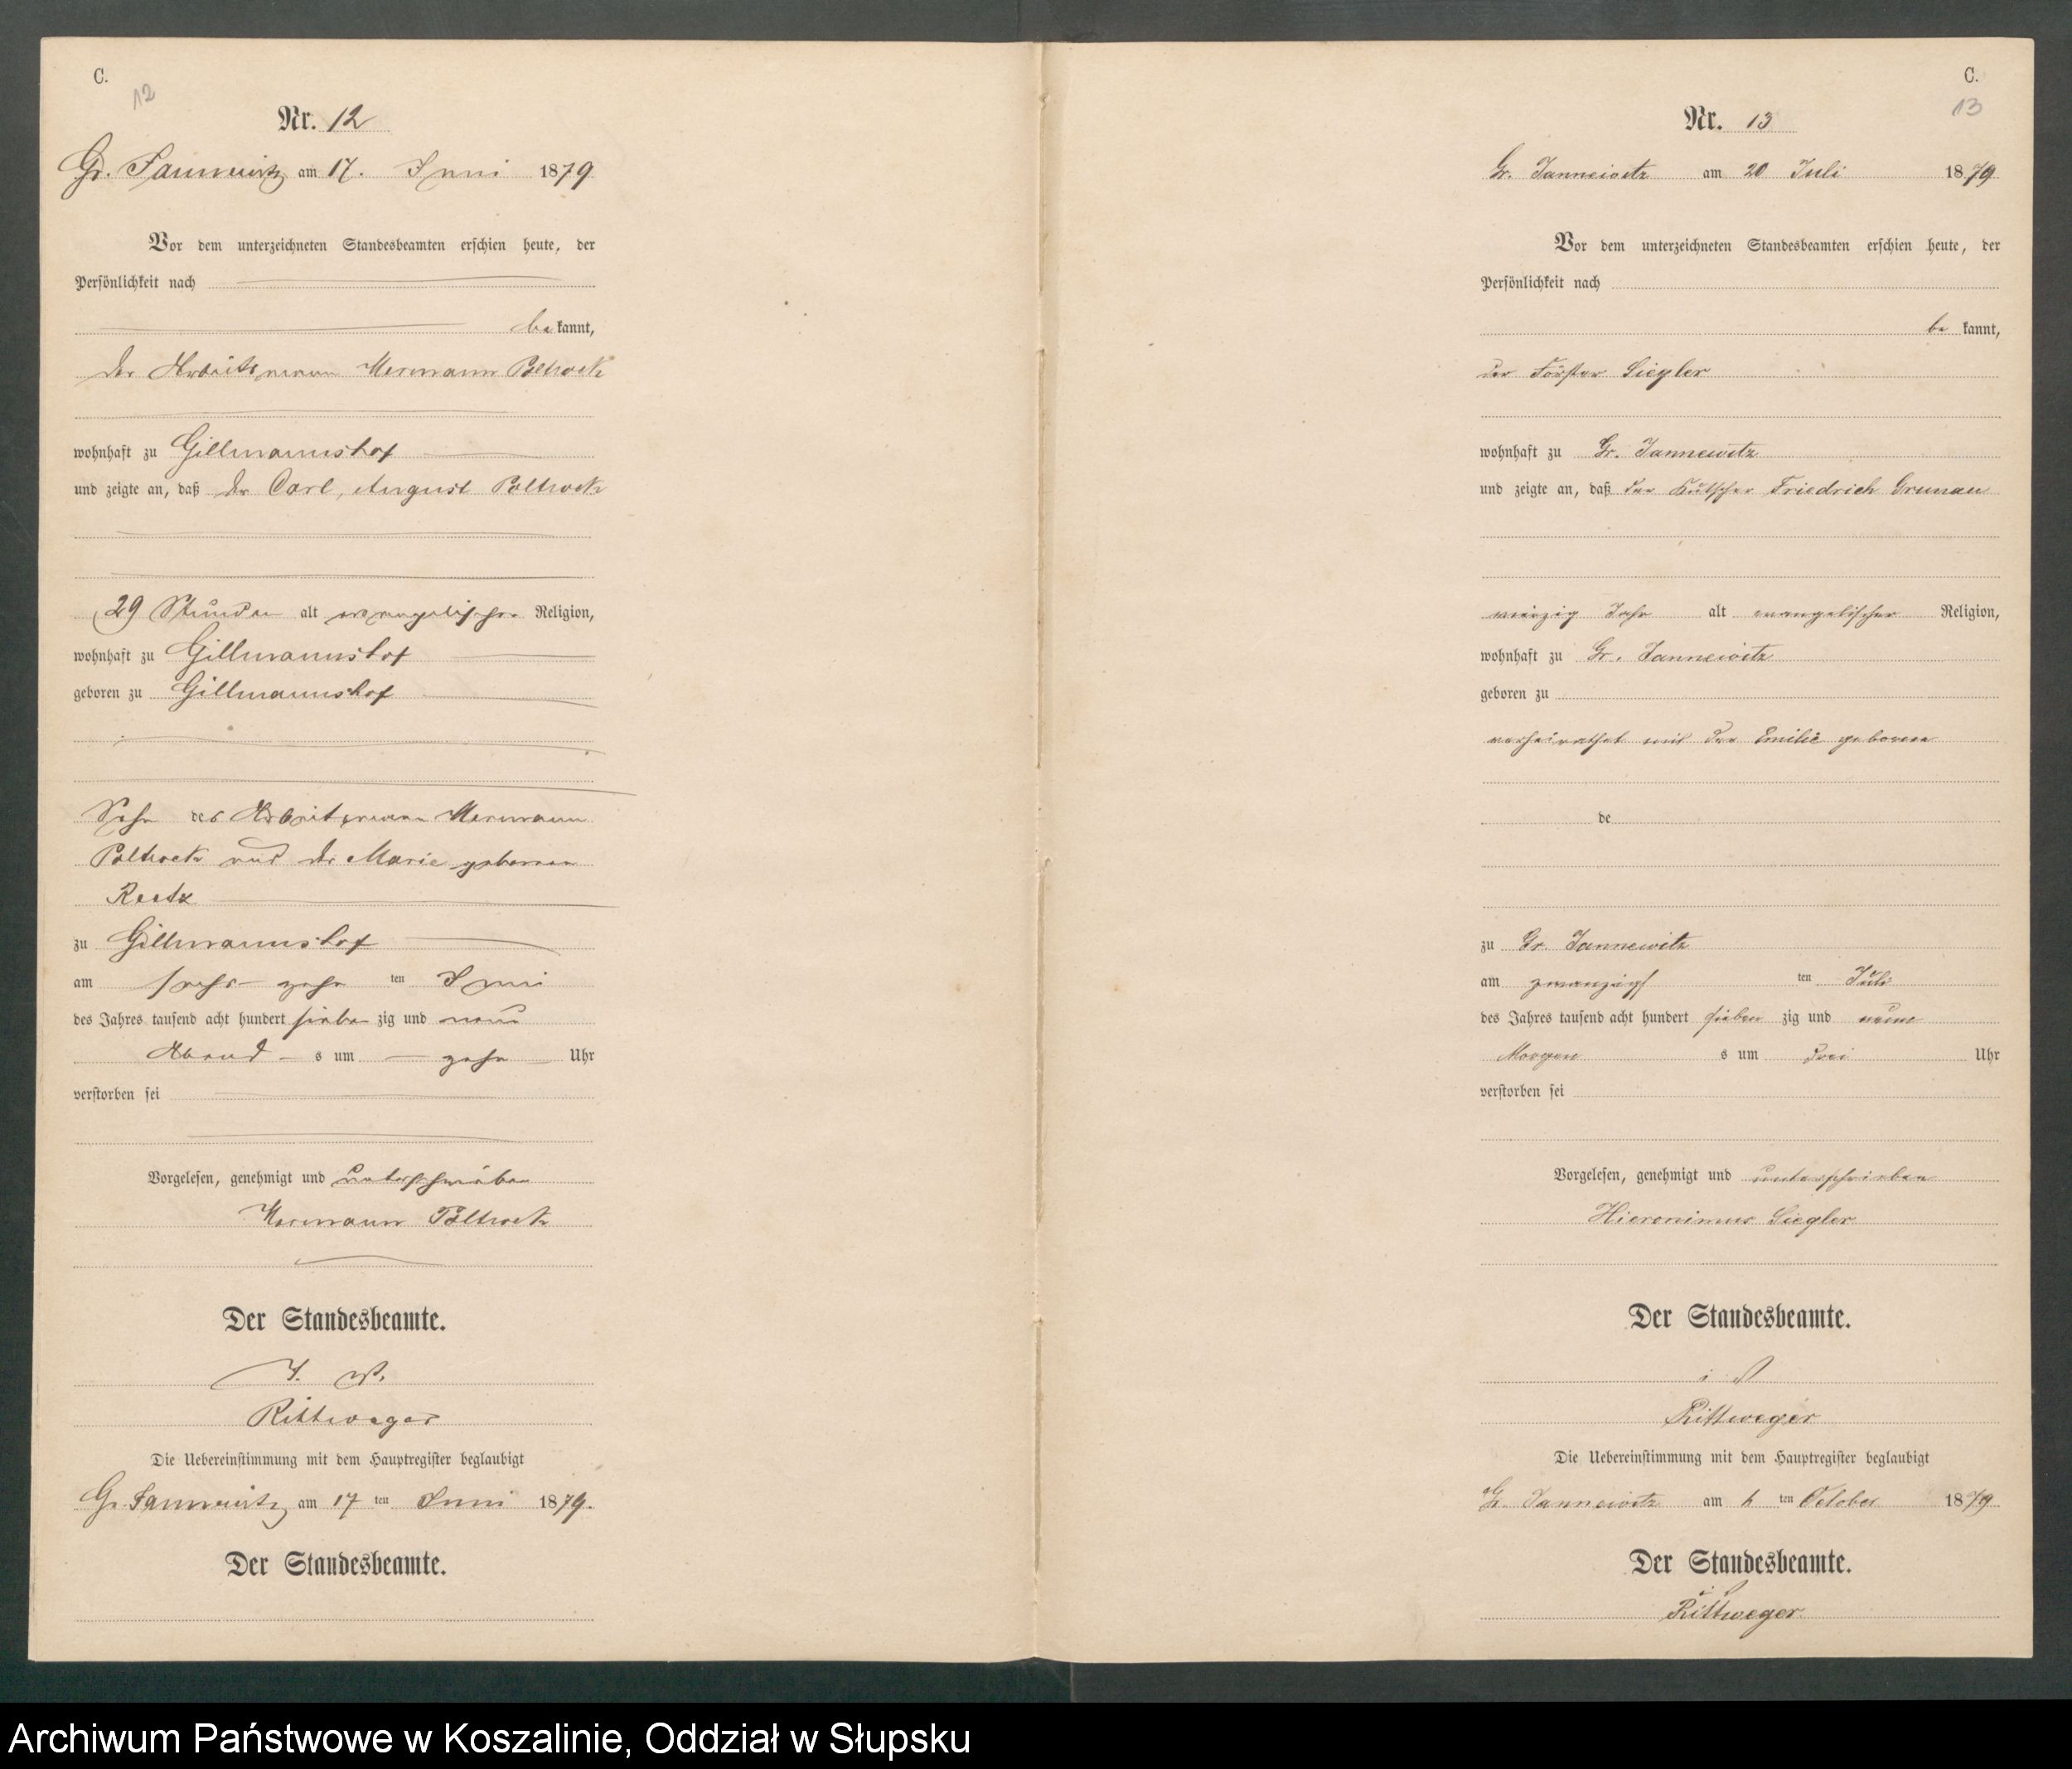 C.
12
Nr. 12
Gr. Jannewitz am 17. Juni 1879
Vor dem unterzeichneten Standesbeamten erschien heute, der
Persönlichkeit nach
bekannt,
der Arbeitsmann Hermann Poltrock
wohnhaft zu Gillmannshof
und zeigte an, daß der Carl, August Poltrock
29 Stunden alt evangelischer Religion,
wohnhaft zu Gillmannshof
geboren zu Gillmannshof
Sohn des Arbeitsmann Hermann
Poltrock und der Marie geborenen
Reetz
zu Gillmannshof
am sechszehn ten Juni
des Jahres tausend acht hundert sieben zig und neun
Abend s um zehn Uhr
verstorben sei
Vorgelesen, genehmigt und unterschrieben
Hermann Poltrock
Der Standesbeamte.
J. V.
Rittweger
Die Uebereinstimmung mit dem Hauptregister beglaubigt
Gr. Jannewitz am 17 ten Juni 1879.
Der Standesbeamte.
C.
13
Nr. 13
Gr. Jannewitz am 20 Juli 1879
Vor dem unterzeichneten Standesbeamten erschien heute, der
Persönlichkeit nach
be kannt,
der Förster Siegler
wohnhaft zu Gr. Jannewitz
und zeigte an, daß der Kutscher Friedrich Grunau
vierzig Jahr alt evangelischer Religion,
wohnhaft zu Gr. Jannewitz
geboren zu
verheirathet mit der Emilie geborene
de
zu Gr. Jannewitz
am zwanzigs ten Juli
des Jahres tausend acht hundert sieben zig und neun
Morgen s um drei Uhr
verstorben sei
Vorgelesen, genehmigt und unterschrieben
Hieronimus Siegler
Der Standesbeamte.
i V
Rittweger
Die Uebereinstimmung mit dem Hauptregister beglaubigt
Gr. Jannewitz am ten October 1879
Der Standesbeamte.
Rittweger
Archiwum Państwowe w Koszalinie, Oddział w Słupsku